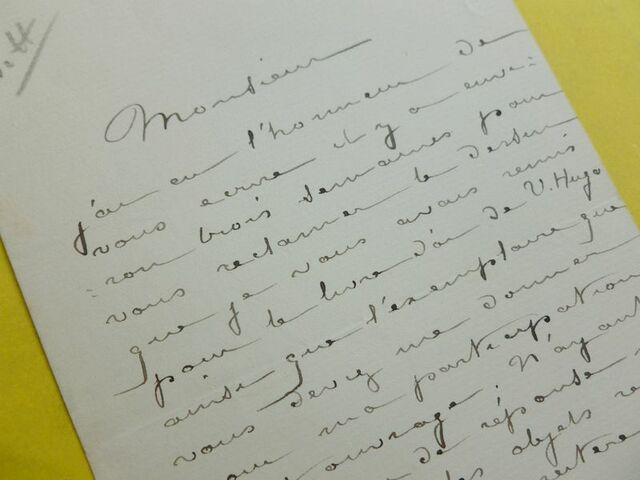 Monsieur
j'ai eu l'honneur de
vous écrire il y a envi=
=ron trois semaines pour
vous réclamer le dessin
que je vous avais remis
pour le livre d'or de V. Hugo
ainsi que l'exemplaire que
vous deviez me donner
pour ma participation
ouvrage. N'ayant
de réponse
objets